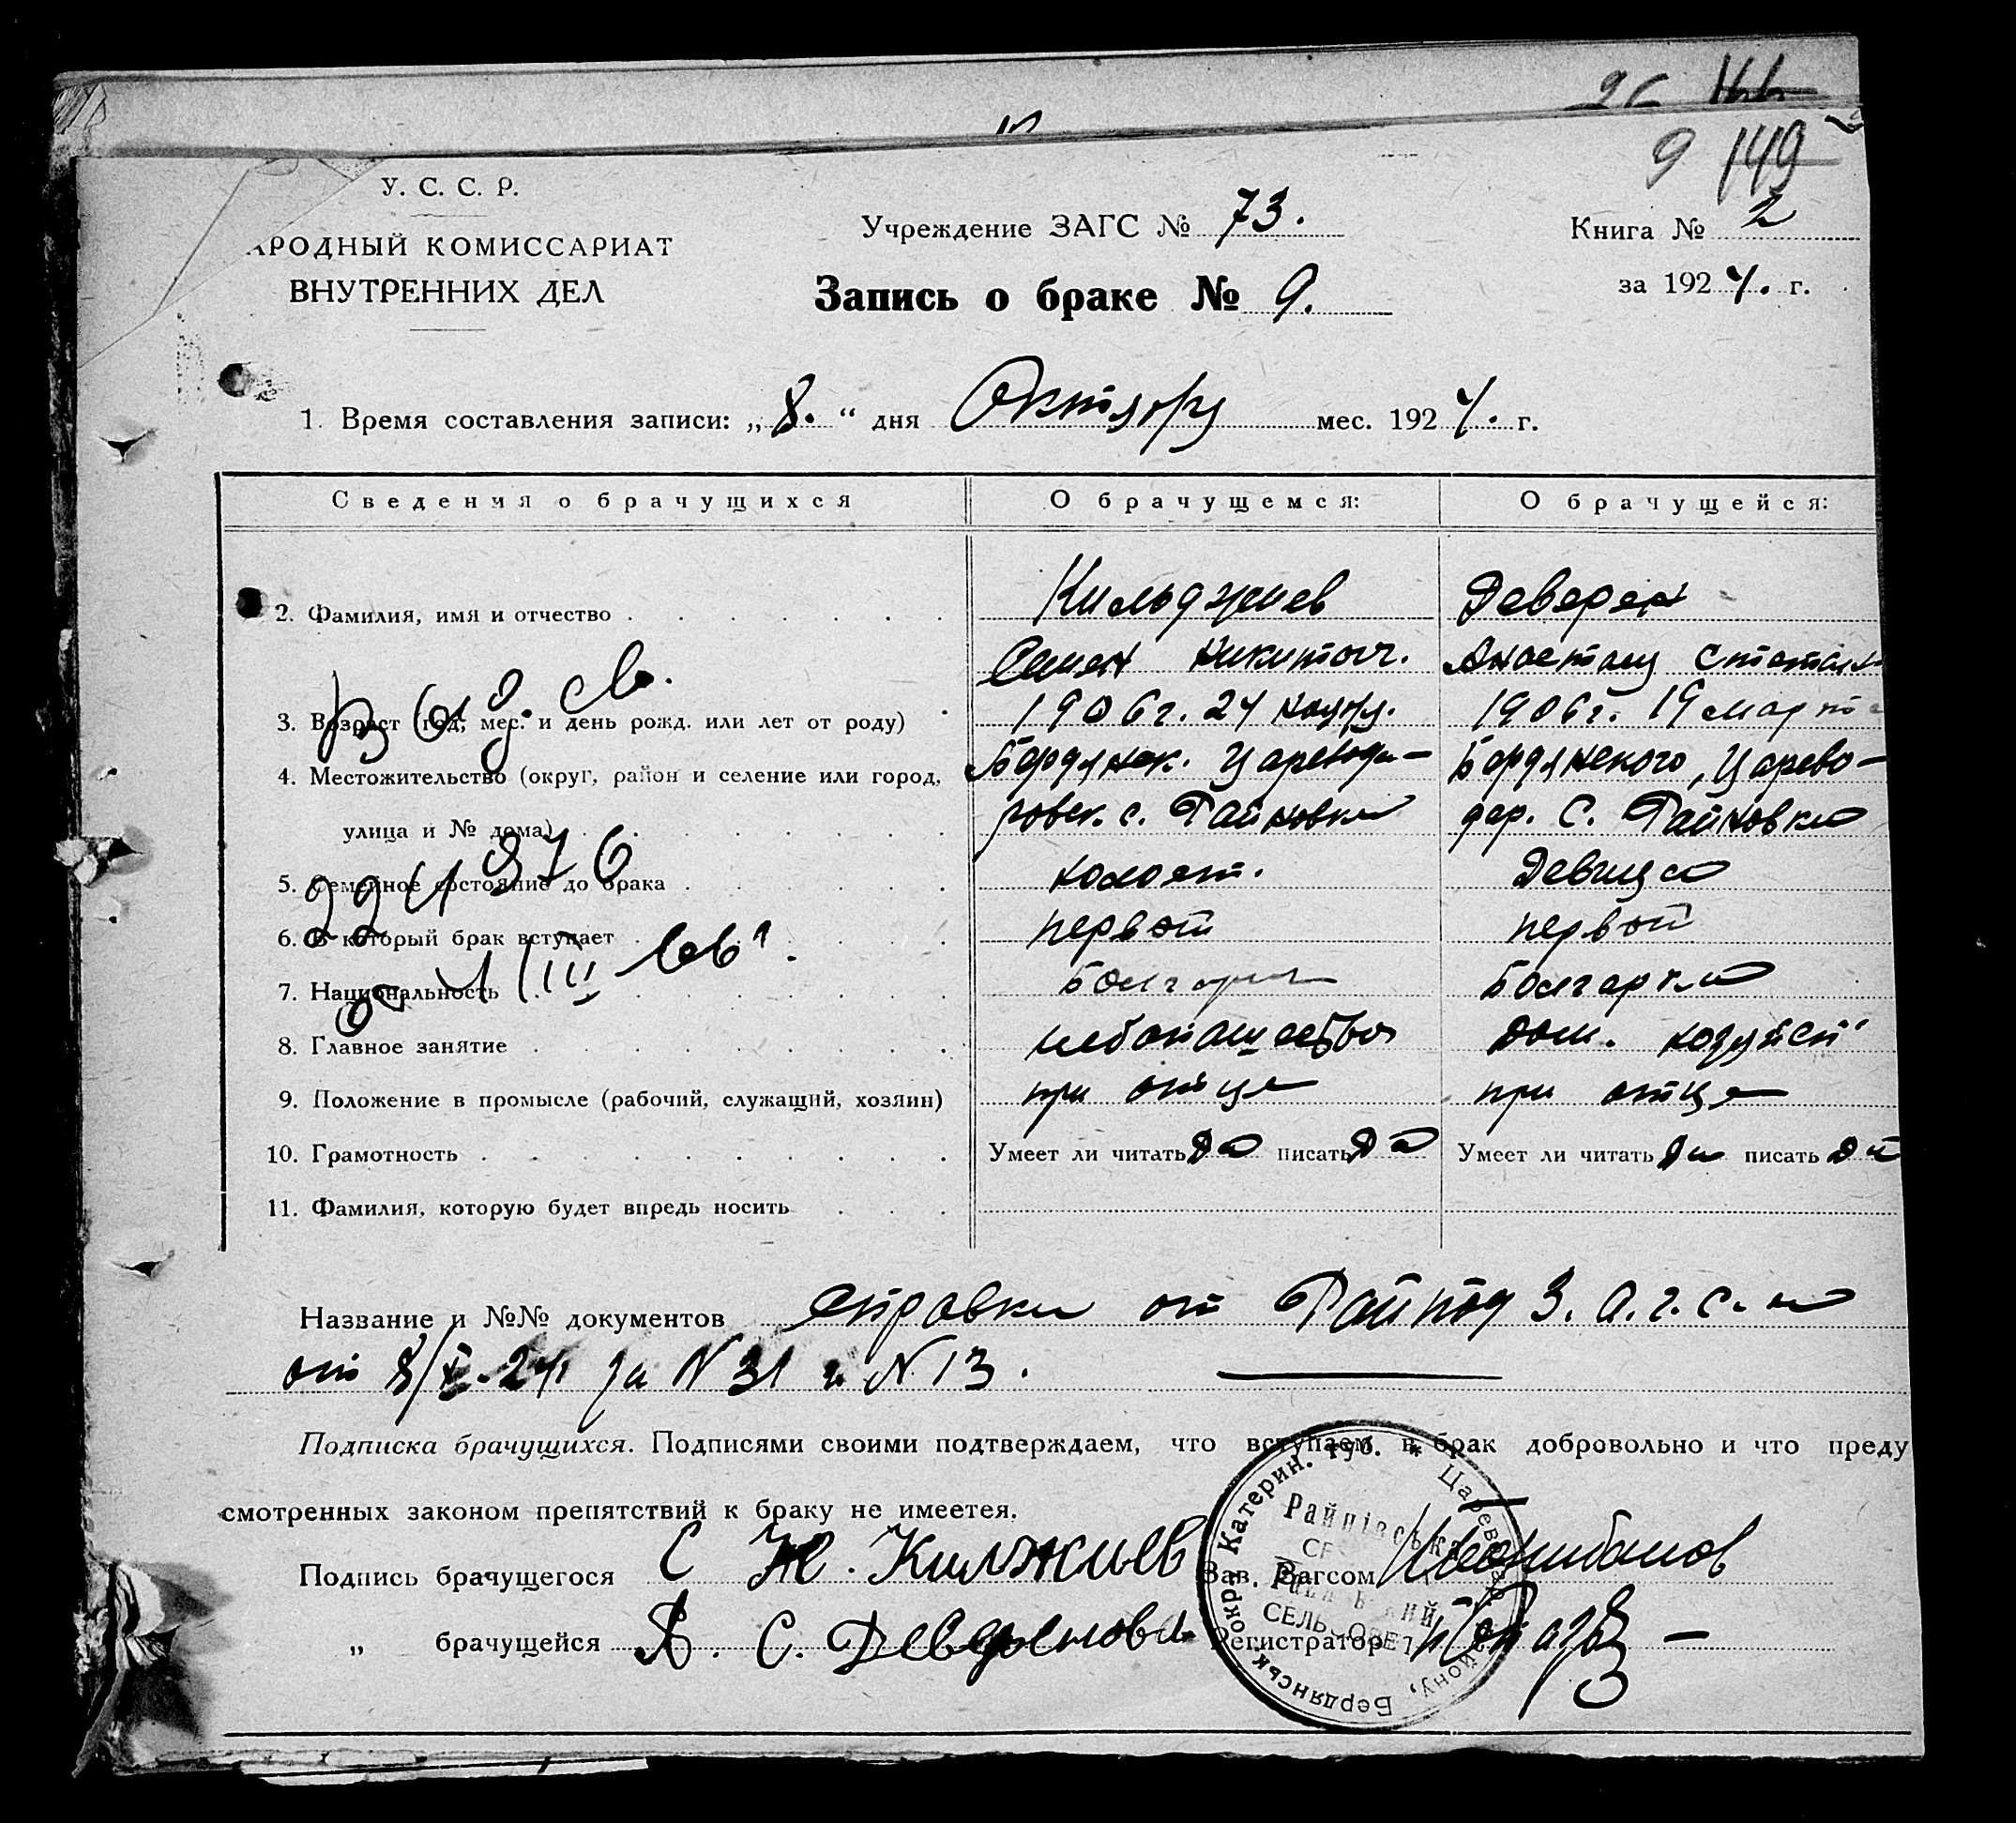 9 149
У. С. С. Р.
АРОДНЫЙ КОМИССАРИАТ
ВНУТРЕННИХ ДЕЛ
Учреждение ЗАГС № 73.
Книга № 2
Запись о браке № 9.
за 1924. г.
1. Время составления записи: „8.“ дня Октября мес. 1924. г.
Сведения о брачущихся
О брачущемся:
О брачущейся:
2. Фамилия, имя и отчество
Кильджиев
Деверен
Семен Никитич.
Анастасия Степан
3. Возраст (год, мес. и день рожд. или лет от роду)
1906 г. 24 ноябр.
1906 г. 19 март
4. Местожительство (округ, район и селение или город,
Бердянск. Царевода-
Бердянского, Царево-
улица и № дома)
ровск. с. Райновка
дар. С. Райновка
5. Семейное состояние до брака
холост.
Девица
6. В который брак вступает
первый
первый
7. Национальность
Болгарин
Болгарка
8. Главное занятие
хлебопашество
дом. хозяйст
9. Положение в промысле (рабочий, служащий, хозяин)
при отце
при отце
10. Грамотность
Умеет ли читать Да писать Да
Умеет ли читать Да писать Да
11. Фамилия, которую будет впредь носить
выд. св.
224976
1/III
Название и №№ документов справки от Райпод З.а.г.с.а
от 8/X-24 за N 31 и N 13.
Подписка брачущихся. Подписями своими подтверждаем, что вступаем в брак добровольно и что преду
смотренных законом препятствий к браку не имеетея.
Подпись брачущегося С Н. Килжиев
Зав. Загсом
„ брачущейся А. С. Деверенова
Регистратор
Бердянськ. окр. Катерин. губ. * Царевод району,
Райнівська
СЕЛЬСОВЕТ